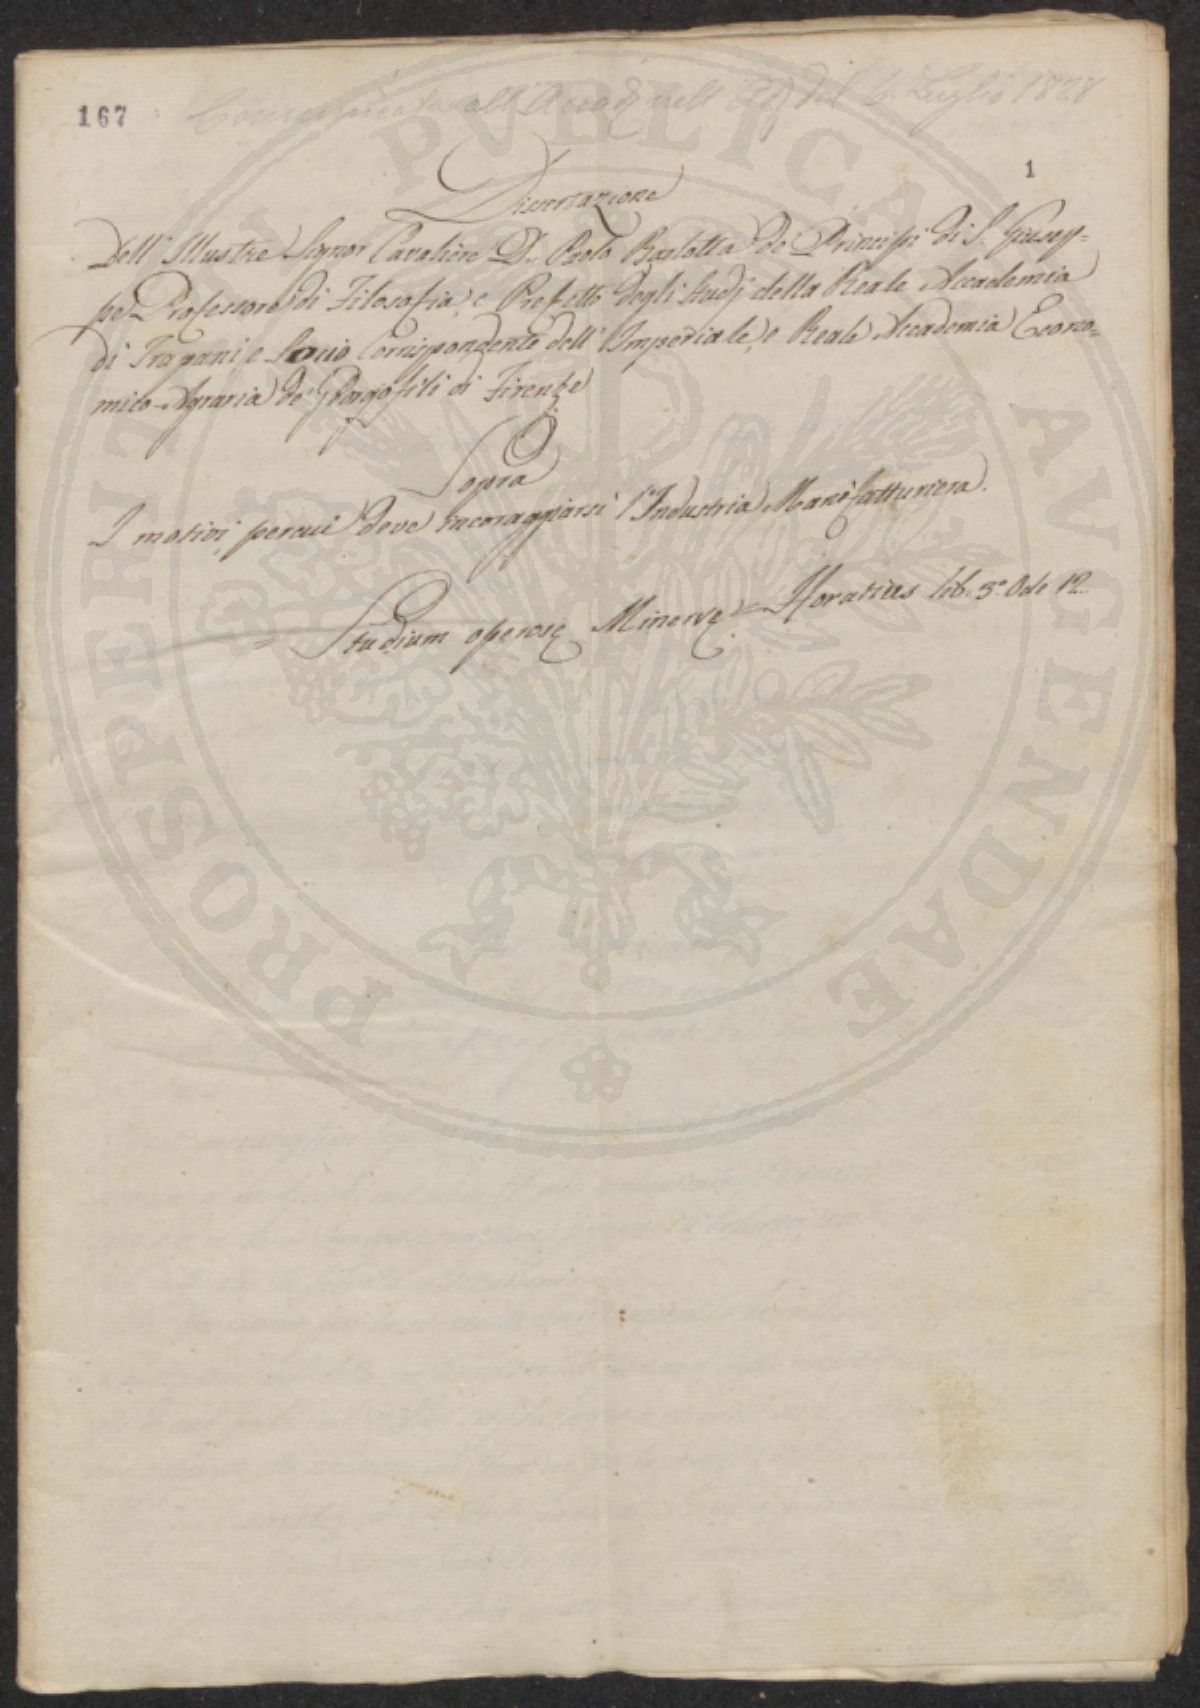 167
Comunicata all'Accad. nell' del 6. Luglio 1828
1
Dissertazione
Dell' Illustre Signor Cavaliere D. Paolo Barlotta de' Principi di S. Giusep=
pe Professore di Filosofia, e Prefetto degli Studj della Reale Accademia
di Trapani e Socio Corrispondente dell' Imperiale, e Reale Accademia Econo=
mico-Agraria de' Georgofili di Firenze
Sopra
I motivi, percui deve incoraggiarsi l'Industria Manifatturiera.
= Studium operosę Minervę = Horatius lib. 3.° Ode 12.
PROSPERITATI PVBLICAE AVGENDAE